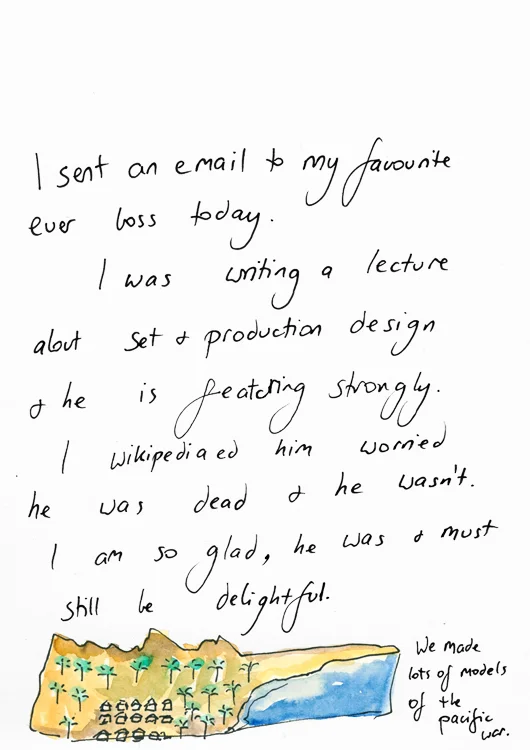 I sent an email to my favourite
ever boss today.
I was writing a lecture
about set & production design
& he is featuring strongly.
I wikipediaed him worried
he was dead & he wasn't.
I am so glad, he was & must
still be delightful.
We made
lots of models
of the
pacific
war.